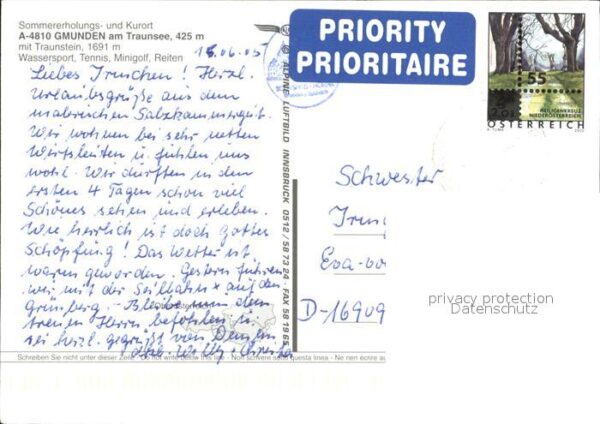 Sommererholungs- und Kurort
A-4810 GMUNDEN am Traunsee, 425 m
mit Traunstein, 1691 m
Wassersport, Tennis, Minigolf, Reiten
15.06.05
Liebes Irmchen! Herzl.
Urlaubsgrüße aus dem
malerischen Salzkammergut.
Wir wohnen bei sehr netten
Wirtsleuten u. fühlen uns
wohl. Wir durften in den
ersten 4 Tagen schon viel
Schönes sehen und erleben.
Wie herrlich ist doch Gottes
Schöpfung! Das Wetter ist
warm geworden. Gestern fuhren
wir mit der Seilbahn auf den
Grünberg. – Bleibe nun dem
treuen Herrn befohlen u.
sei herzl. gegrüßt von Deinen
Willy + Christa
Schreiben Sie nicht unter dieser Zeile · Do not write below this line · Non scrivere sotto questa linea · Ne rien écrire au
© ALPINE LUFTBILD INNSBRUCK 0512 / 58 73 24 · FAX 58 19 65
PRIORITY
PRIORITAIRE
55
HEILIGENKREUZ
NIEDERÖSTERREICH
ÖSTERREICH
Schwester
Irmg
Eva-vo
D-16909
privacy protection
Datenschutz